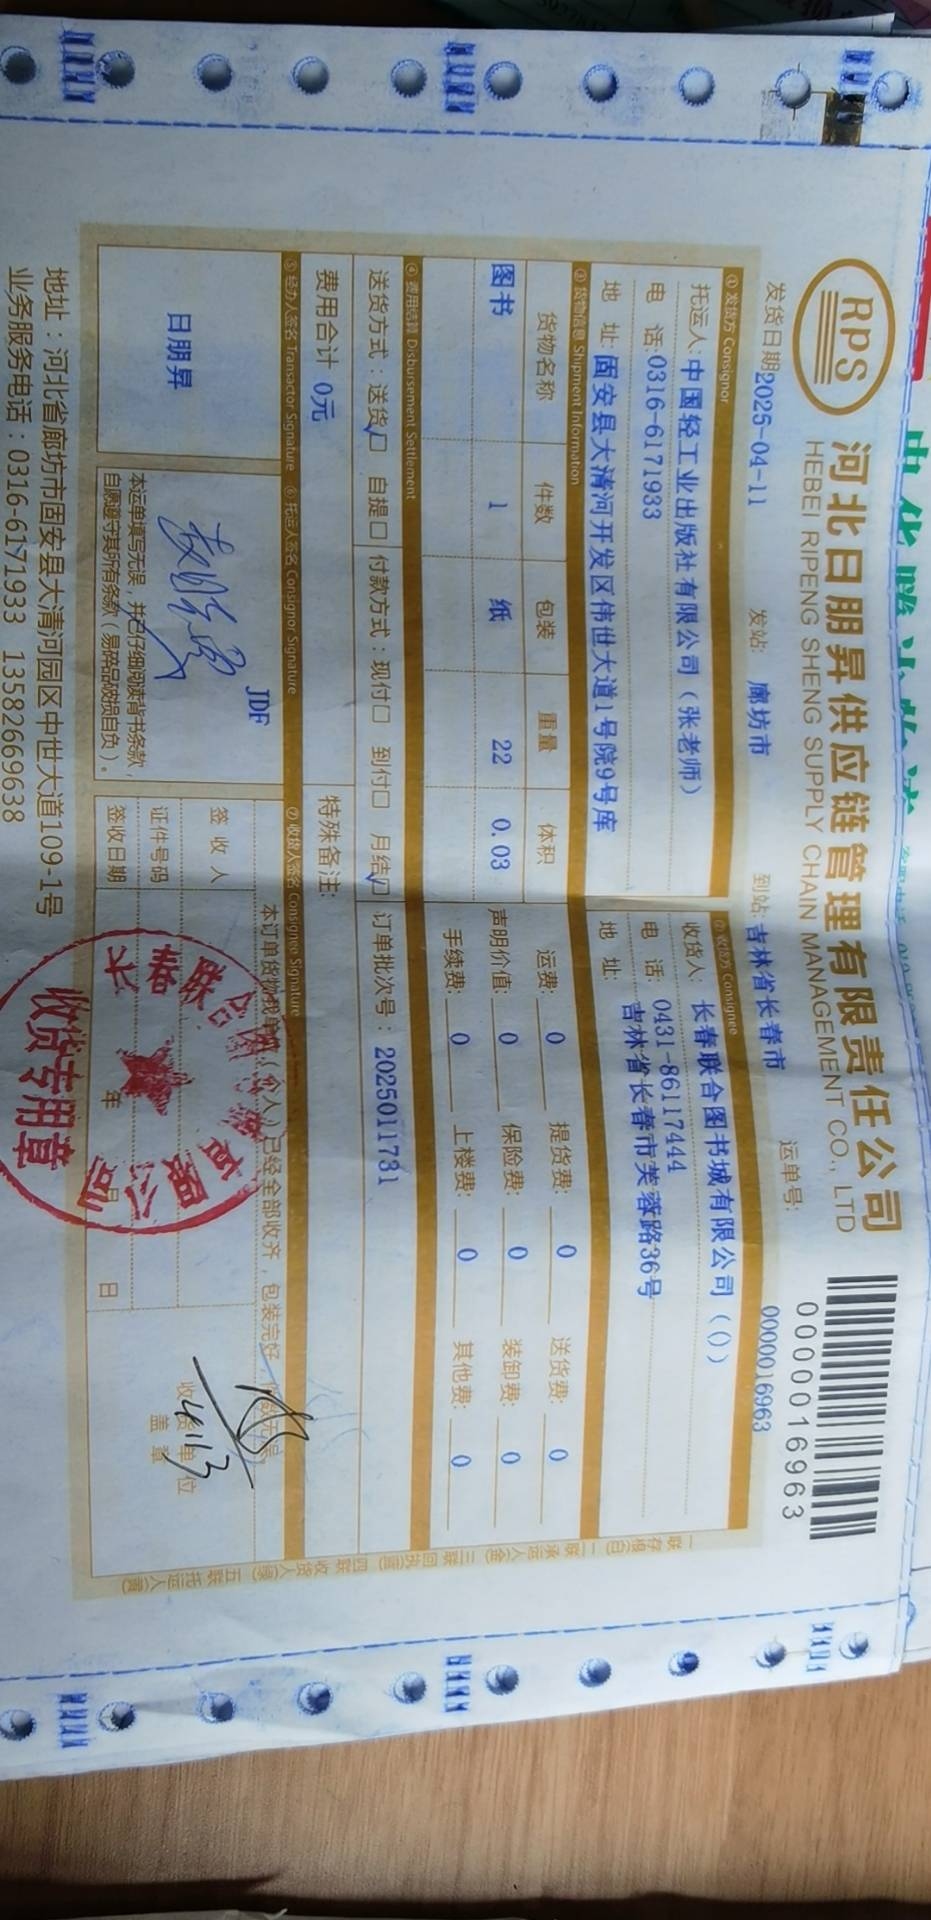 RPS
河北日朋昇供应链管理有限责任公司
HEBEI RIPENG SHENG SUPPLY CHAIN MANAGEMENT CO., LTD
0000016963
发货日期2025-04-11 发站: 廊坊市 到站:吉林省长春市 运单号: 0000016963
① 发货方 Consignor
托运人:中国轻工业出版社有限公司(张老师)
电 话:0316-6171933
地 址:固安县大清河开发区伟世大道1号院9号库
② 收货方 Consignee
收货人: 长春联合图书城有限公司(())
电 话: 0431-86117444
地 址: 吉林省长春市芙蓉路36号
③ 货物信息 Shipment Information
货物名称 件数 包装 重量 体积
图书 1 纸 22 0.03
运费: 0 提货费: 0 送货费: 0
声明价值: 0 保险费: 0 装卸费: 0
手续费: 0 上楼费: 0 其他费: 0
④ 费用结算 Disbursement Settlement
送货方式:送货☑ 自提□ 付款方式:现付□ 到付□ 月结☑ 订单批次号: 2025011731
费用合计 0元 特殊备注:
⑤ 经办人签名 Transactor Signature ⑥ 托运人签名 Consignor Signature ⑦ 收货人签名 Consignee Signature
日朋昇
JDF
本运单填写无误,并已仔细阅读背书条款,
自愿遵守其所有条款(易碎品破损自负)。
本订单货物我单位(个人)已经全部收齐,包装完好
签 收 人
证件号码
签收日期 年 月 日
收货单位
盖 章
长春联合图书城有限公司
收货专用章
地址:河北省廊坊市固安县大清河园区中世大道109-1号
业务服务电话:0316-6171933 13582669638
一联存根(白) 二联承运人(金) 三联回执(蓝) 四联收货人(绿) 五联托运人(黄)